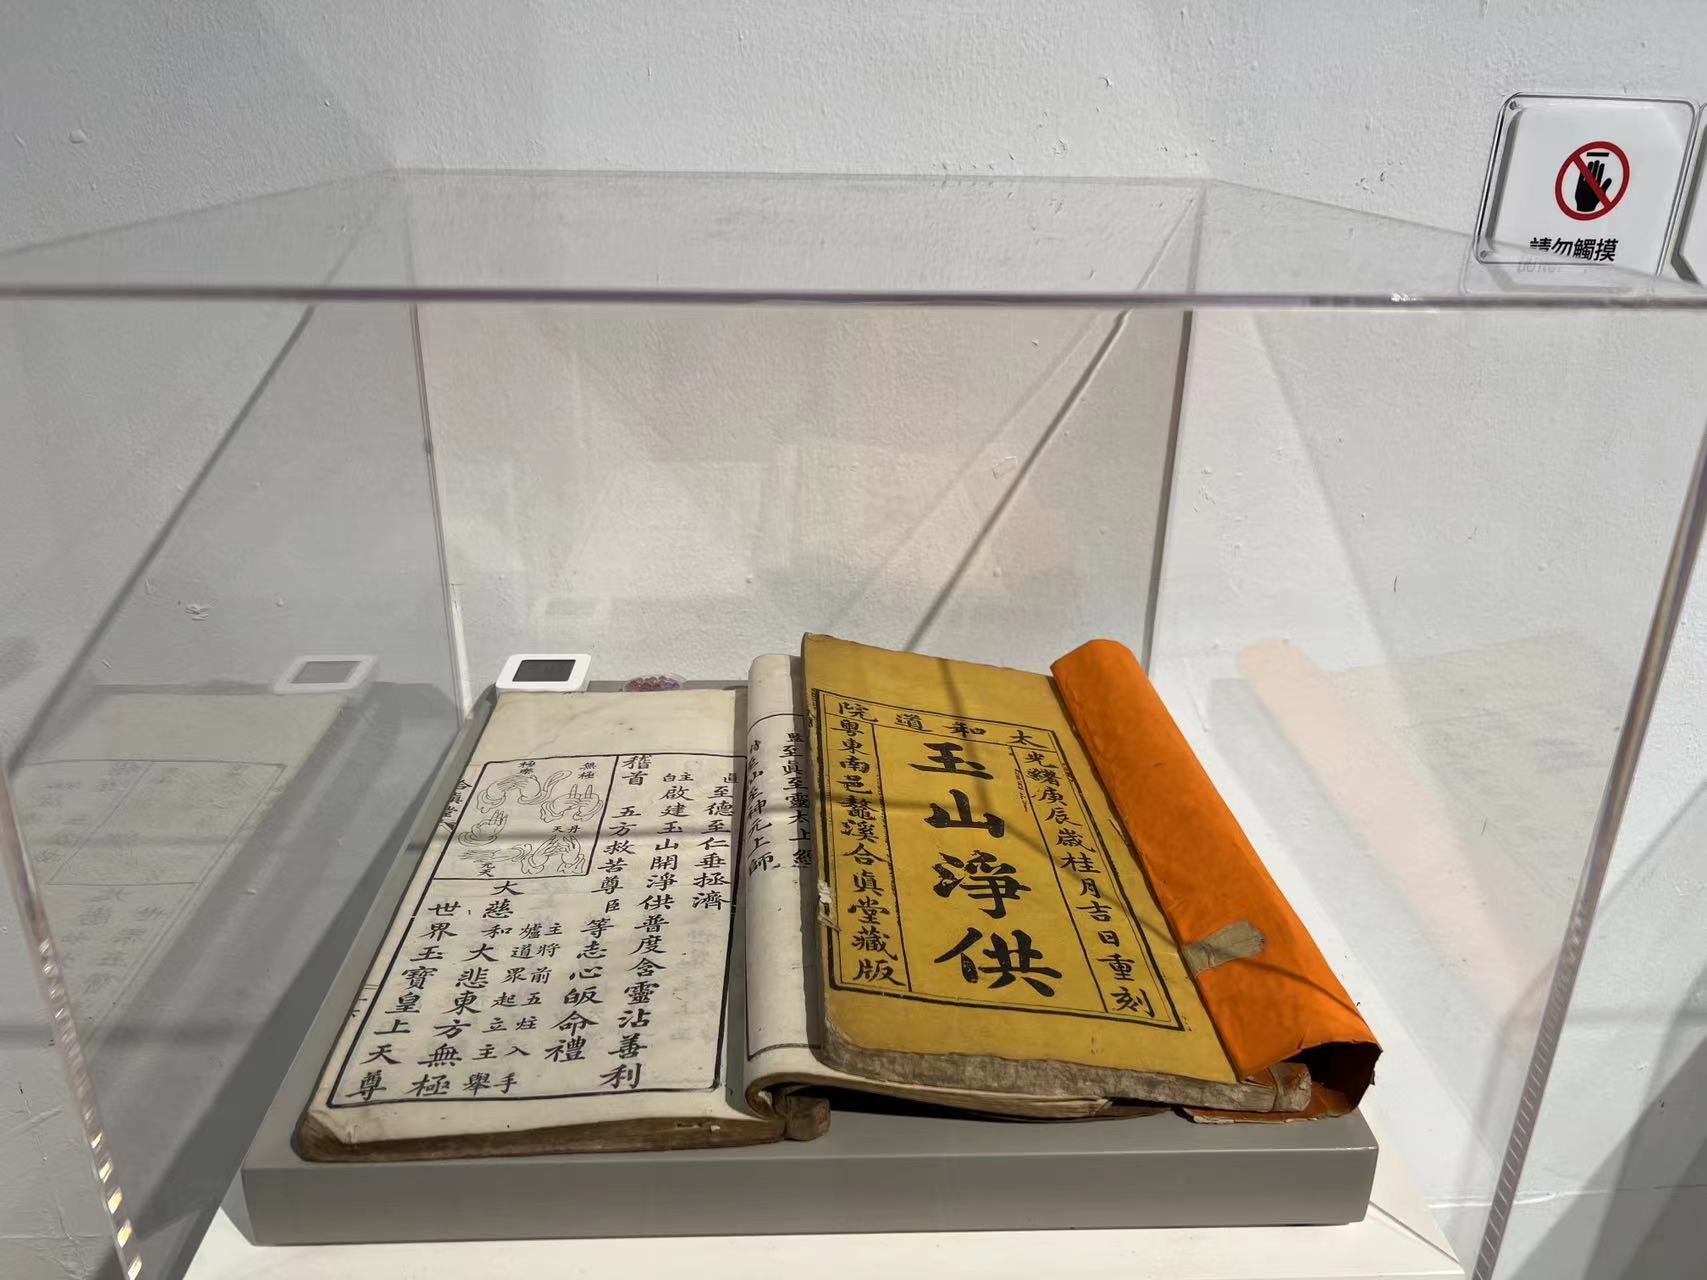 請勿觸摸
太和道院
光緒庚辰歲桂月吉日重刻
玉山淨供
粵東南邑鰲溪合真堂藏版
至真至靈太上
至德至仁垂拯濟
主啟建玉山開淨供普度含靈沾善利
白
稽首 五方救苦尊臣等志心皈命禮
無極
極樂
丹天
元天
主將前五炷入手
爐道眾起立主舉
大慈和大悲東方無極
世界玉寶皇上天尊
合真堂